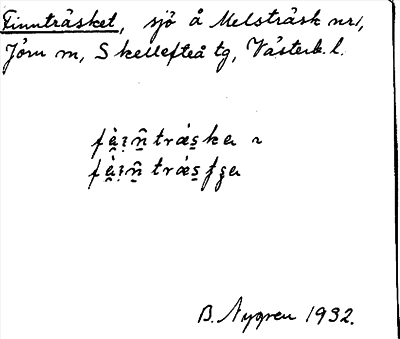 Finnträsket, sjö å Melsträsk nr 1,
Jörn sn, Skellefteå tg, Västerb. l.
fèi̯n̄träs̱ka ~
fèi̯n̄träs̱fʒa
B. Nygren 1932.